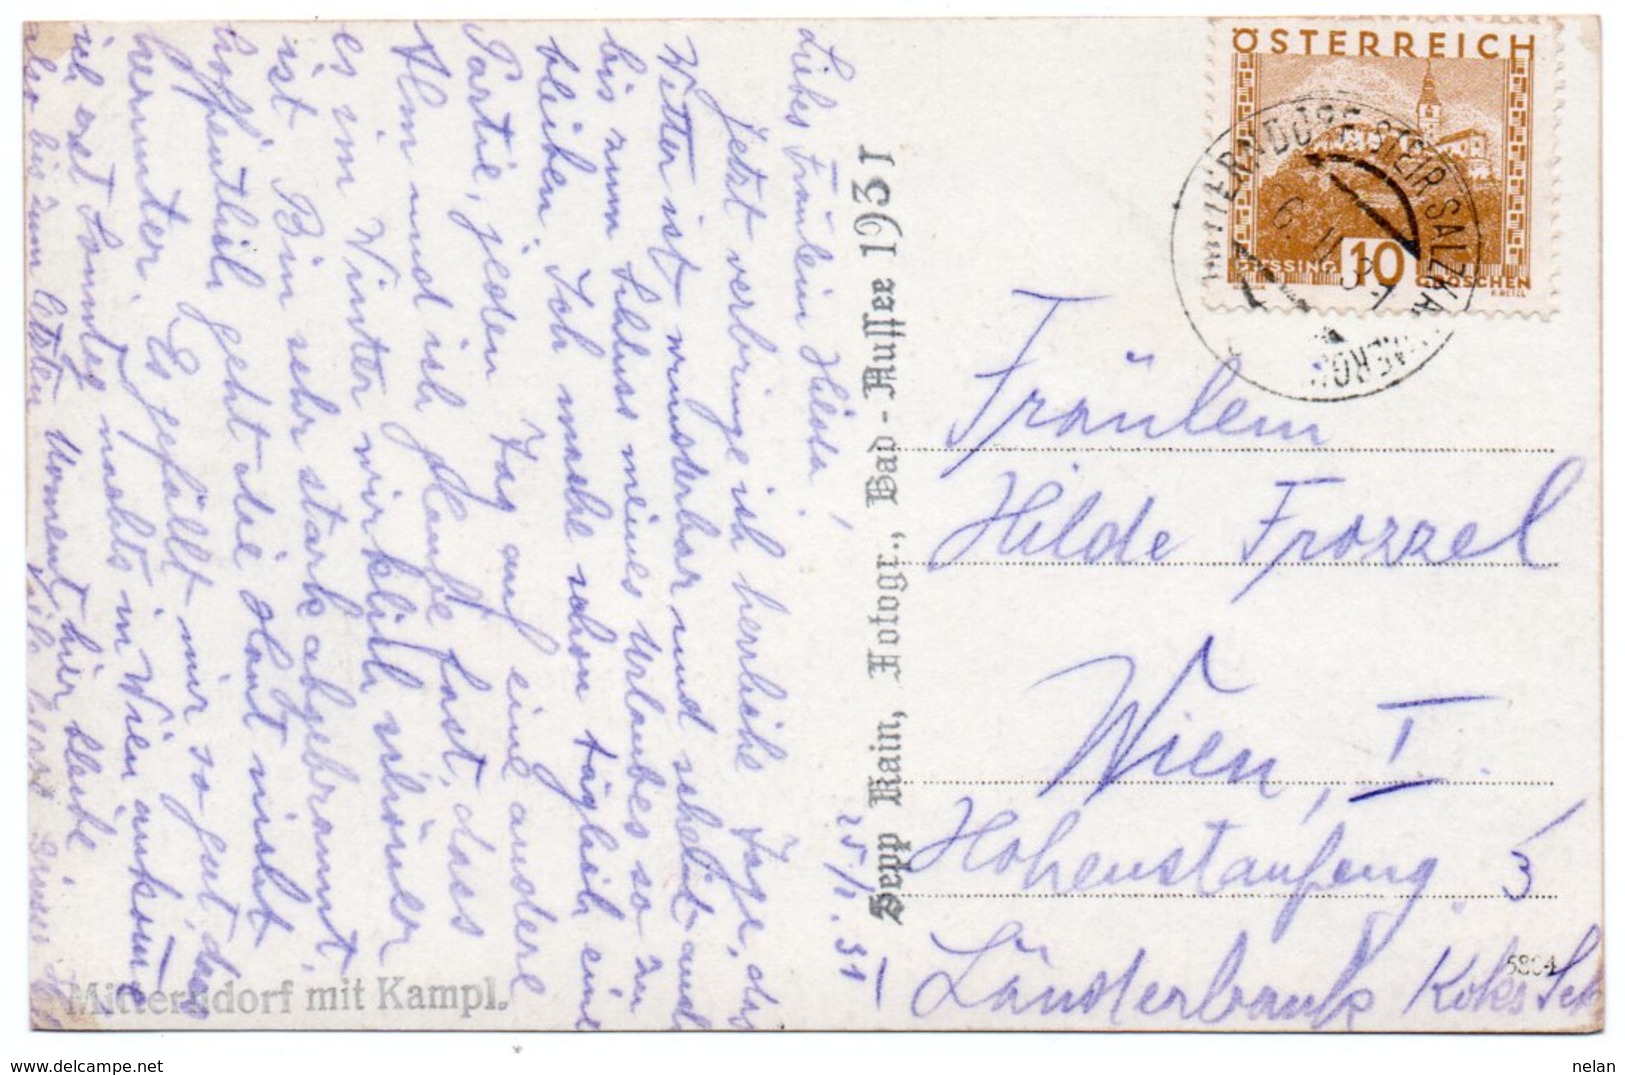 Liebes Fräulein Hilda!
Jetzt verbringe ich herrliche Tage, das
Wetter ist wunderbar und scheint auch
bis zum Schluss meines Urlaubes so zu
bleiben. Ich mache schon täglich eine
Partie, jeden Tag auf eine andere
Alm und ich glaube fast, dass
es im Winter wirklich schöner
ist. Bin sehr stark abgebrannt,
hoffentlich geht die Haut nicht
herunter. Es gefällt mir so gut, dass
ich erst Sonntag nachts in Wien ankomme
also bis zum letzten Moment hier bleibe
25/II. 31
Mitterndorf mit Kampl.
Sepp Rain, Fotogr., Bad-Aussee 1931
ÖSTERREICH
GÜSSING 10 GROSCHEN
MITTERNDORF STEIR. SALZKAMMERGUT
Fräulein
Hilde Frozzel
Wien, I.
Hohenstaufeng. 3
Länderbank Koks
5804
nelan